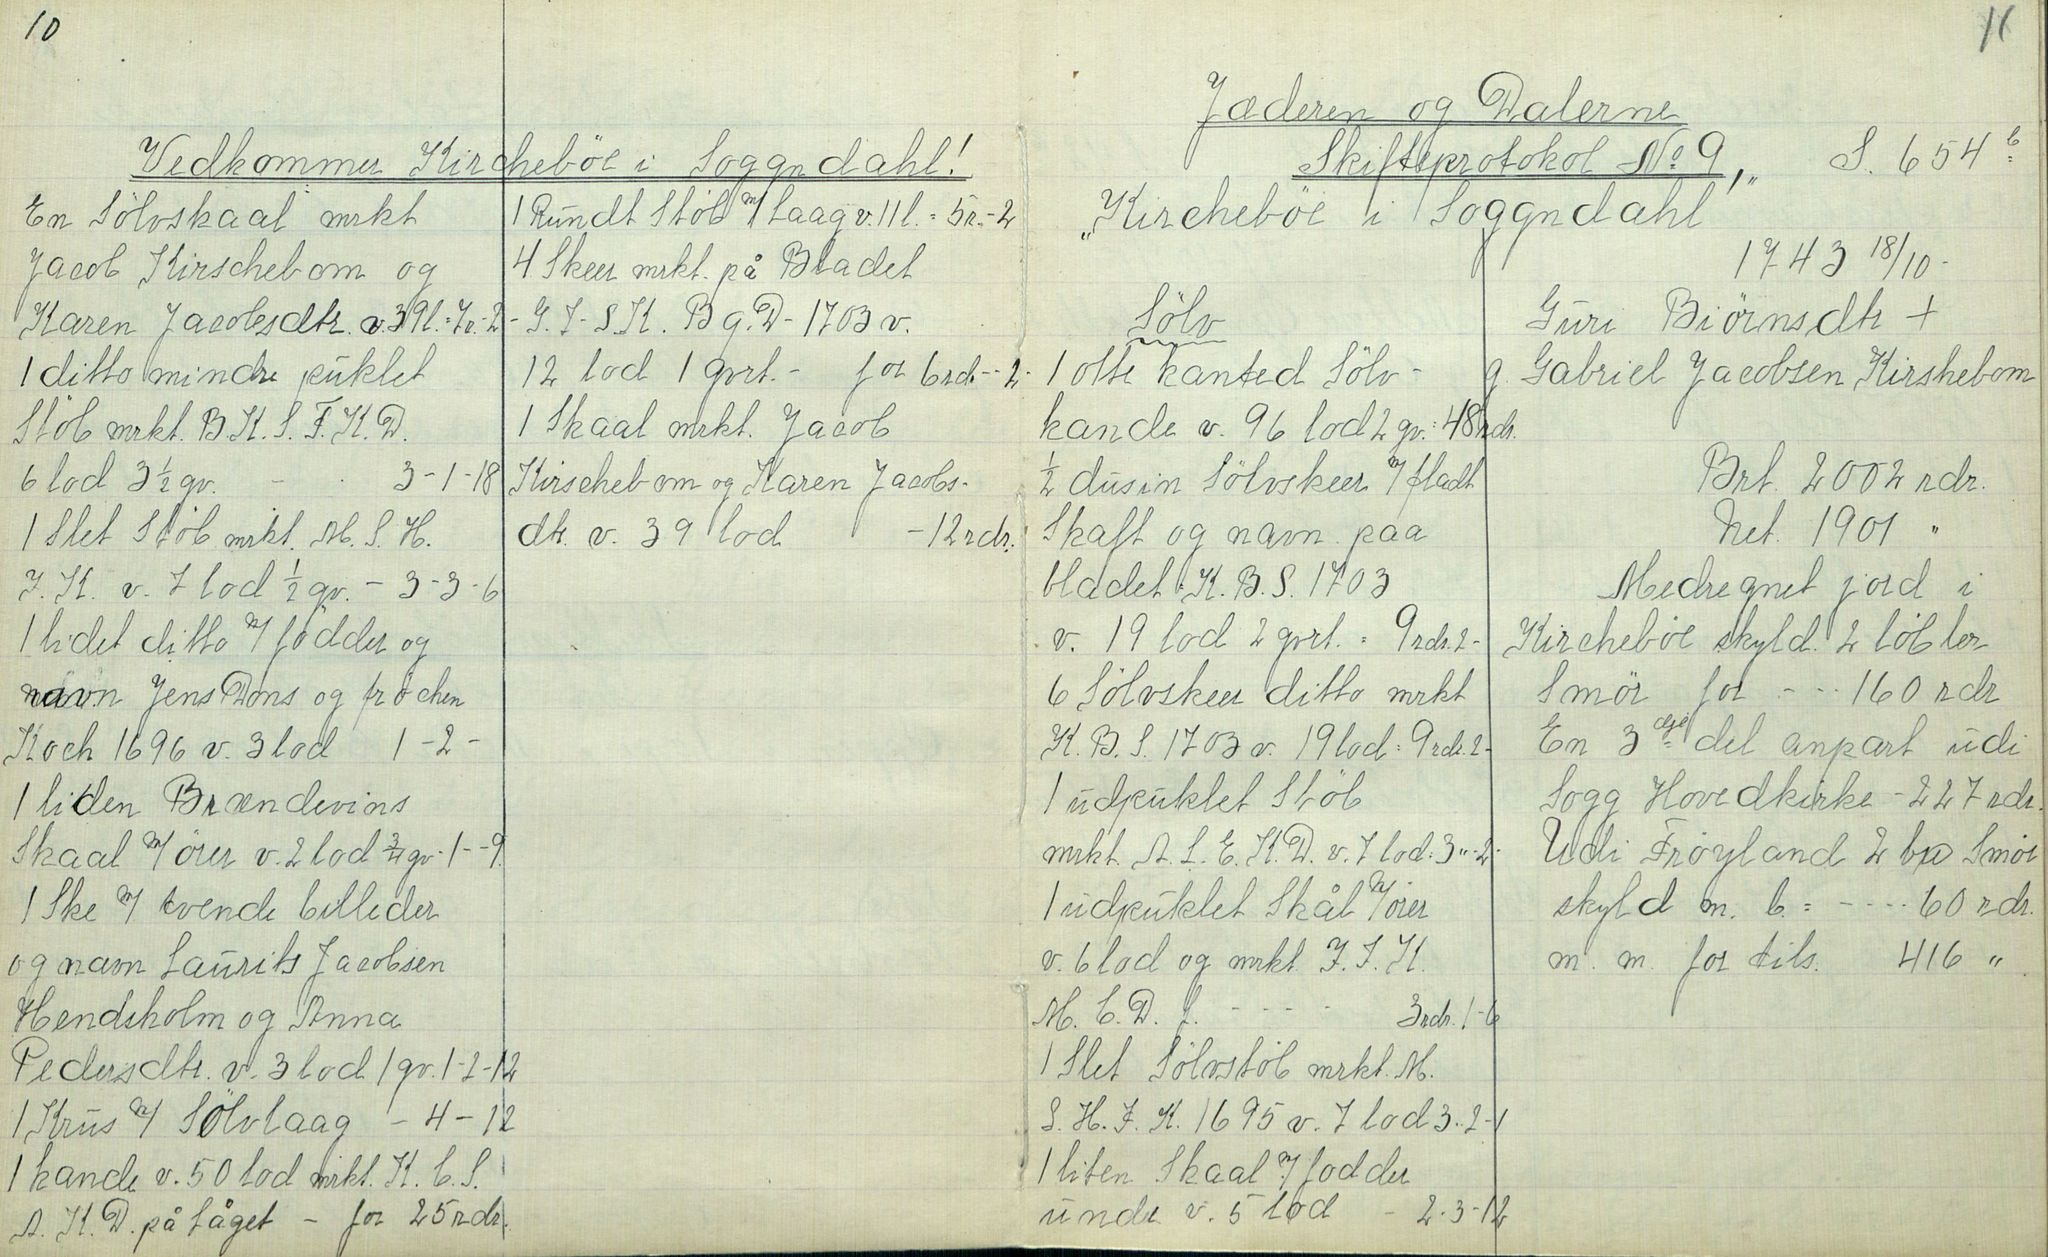 10
Vedkommer Kircheböe i Soggndahl!
En Sölvskaal mrkt
Jacob Kirschebom og
Karen Jacobsdtr. v. 39 l. = 7r.-2-
1 ditto mindre puklet
Stöb mrkt. B. K. S. F. K. D.
6 lod 3 1/2 qv. - - 3-1-18
1 Slet Stöb mrkt. M. S. H.
J. K. v. 7 lod 1/2 qv. - 3-3-6
1 lidet ditto m/ födder og
navn Jens Dons og fröchen
Koch 1696 v. 3 lod 1-2-
1 liden Brændevins
Skaal m/ örer v. 2 lod 3/4 qv. 1--9
1 Ske m/ tvende billeder
og navn Laurits Jacobsen
Hendsholm og Anna
Pedersdtr. v. 3 lod 1 qv. 1-2-12
1 Krus m/ Sölvlaag - 4-12
1 kande v. 50 lod mrkt. K. C. S.
A. K. D. på Låget - for 25 rdr.
1 Rundt Stöb m/ Laag v. 11 l. = 5r.-2
4 Skeer mrkt. på Bladet
G. J. S. K. B g. D - 1703 v.
12 lod 1 qvrt. - for 6 rdr.--2-
1 Skaal mrkt. Jacob
Kirschebom og Karen Jacobs-
dtr. v. 39 lod - 12 rdr.
11
Jæderen og Dalerne
Skifteprotokol No 9, S. 654 b
"Kircheböe i Soggndahl"
1743 18/10-
Sölv
1 otte kanted Sölv-
kande v. 96 lod 2 qv. = 48 rdr.
1/2 dusin Sölvskeer m/ fladt
Skaft og navn paa
bladet K. B. S. 1703
v. 19 lod 2 qvrt. = 9 rdr. 2-
6 Sölvskeer ditto mrkt
K. B. S. 1703 v. 19 lod = 9 rdr. 2-
1 udpuklet Stöb
mrkt. A. L. E. K. D. v. 7 lod = 3"-2-
1 udpuklet Skål m/ örer
v. 6 lod og mrkt. J. J. K.
M. C. D. f. - - - - 3 rdr. 1-6
1 Slet Sölvstöb mrkt. M.
S. H. J. K. 1695 v. 7 lod 3.-2-1
1 liten Skaal m/ fodder
unde v. 5 lod - 2-3-12
Guri Biörnsdtr +
g. Gabriel Jacobsen Kirshebom
Brt. 2002 rdr.
Net. 1901 "
Medregnet jord i
Kircheböe skyld. 2 löb ler
Smör for - - - 160 rdr
En 3 dje del anpart udi
Sogg Hovedkirke - 227 rdr.
Udi Fröyland 2 Smör
skyld m. b. = - - - - 60 rdr.
m. m. for tils. 416 "